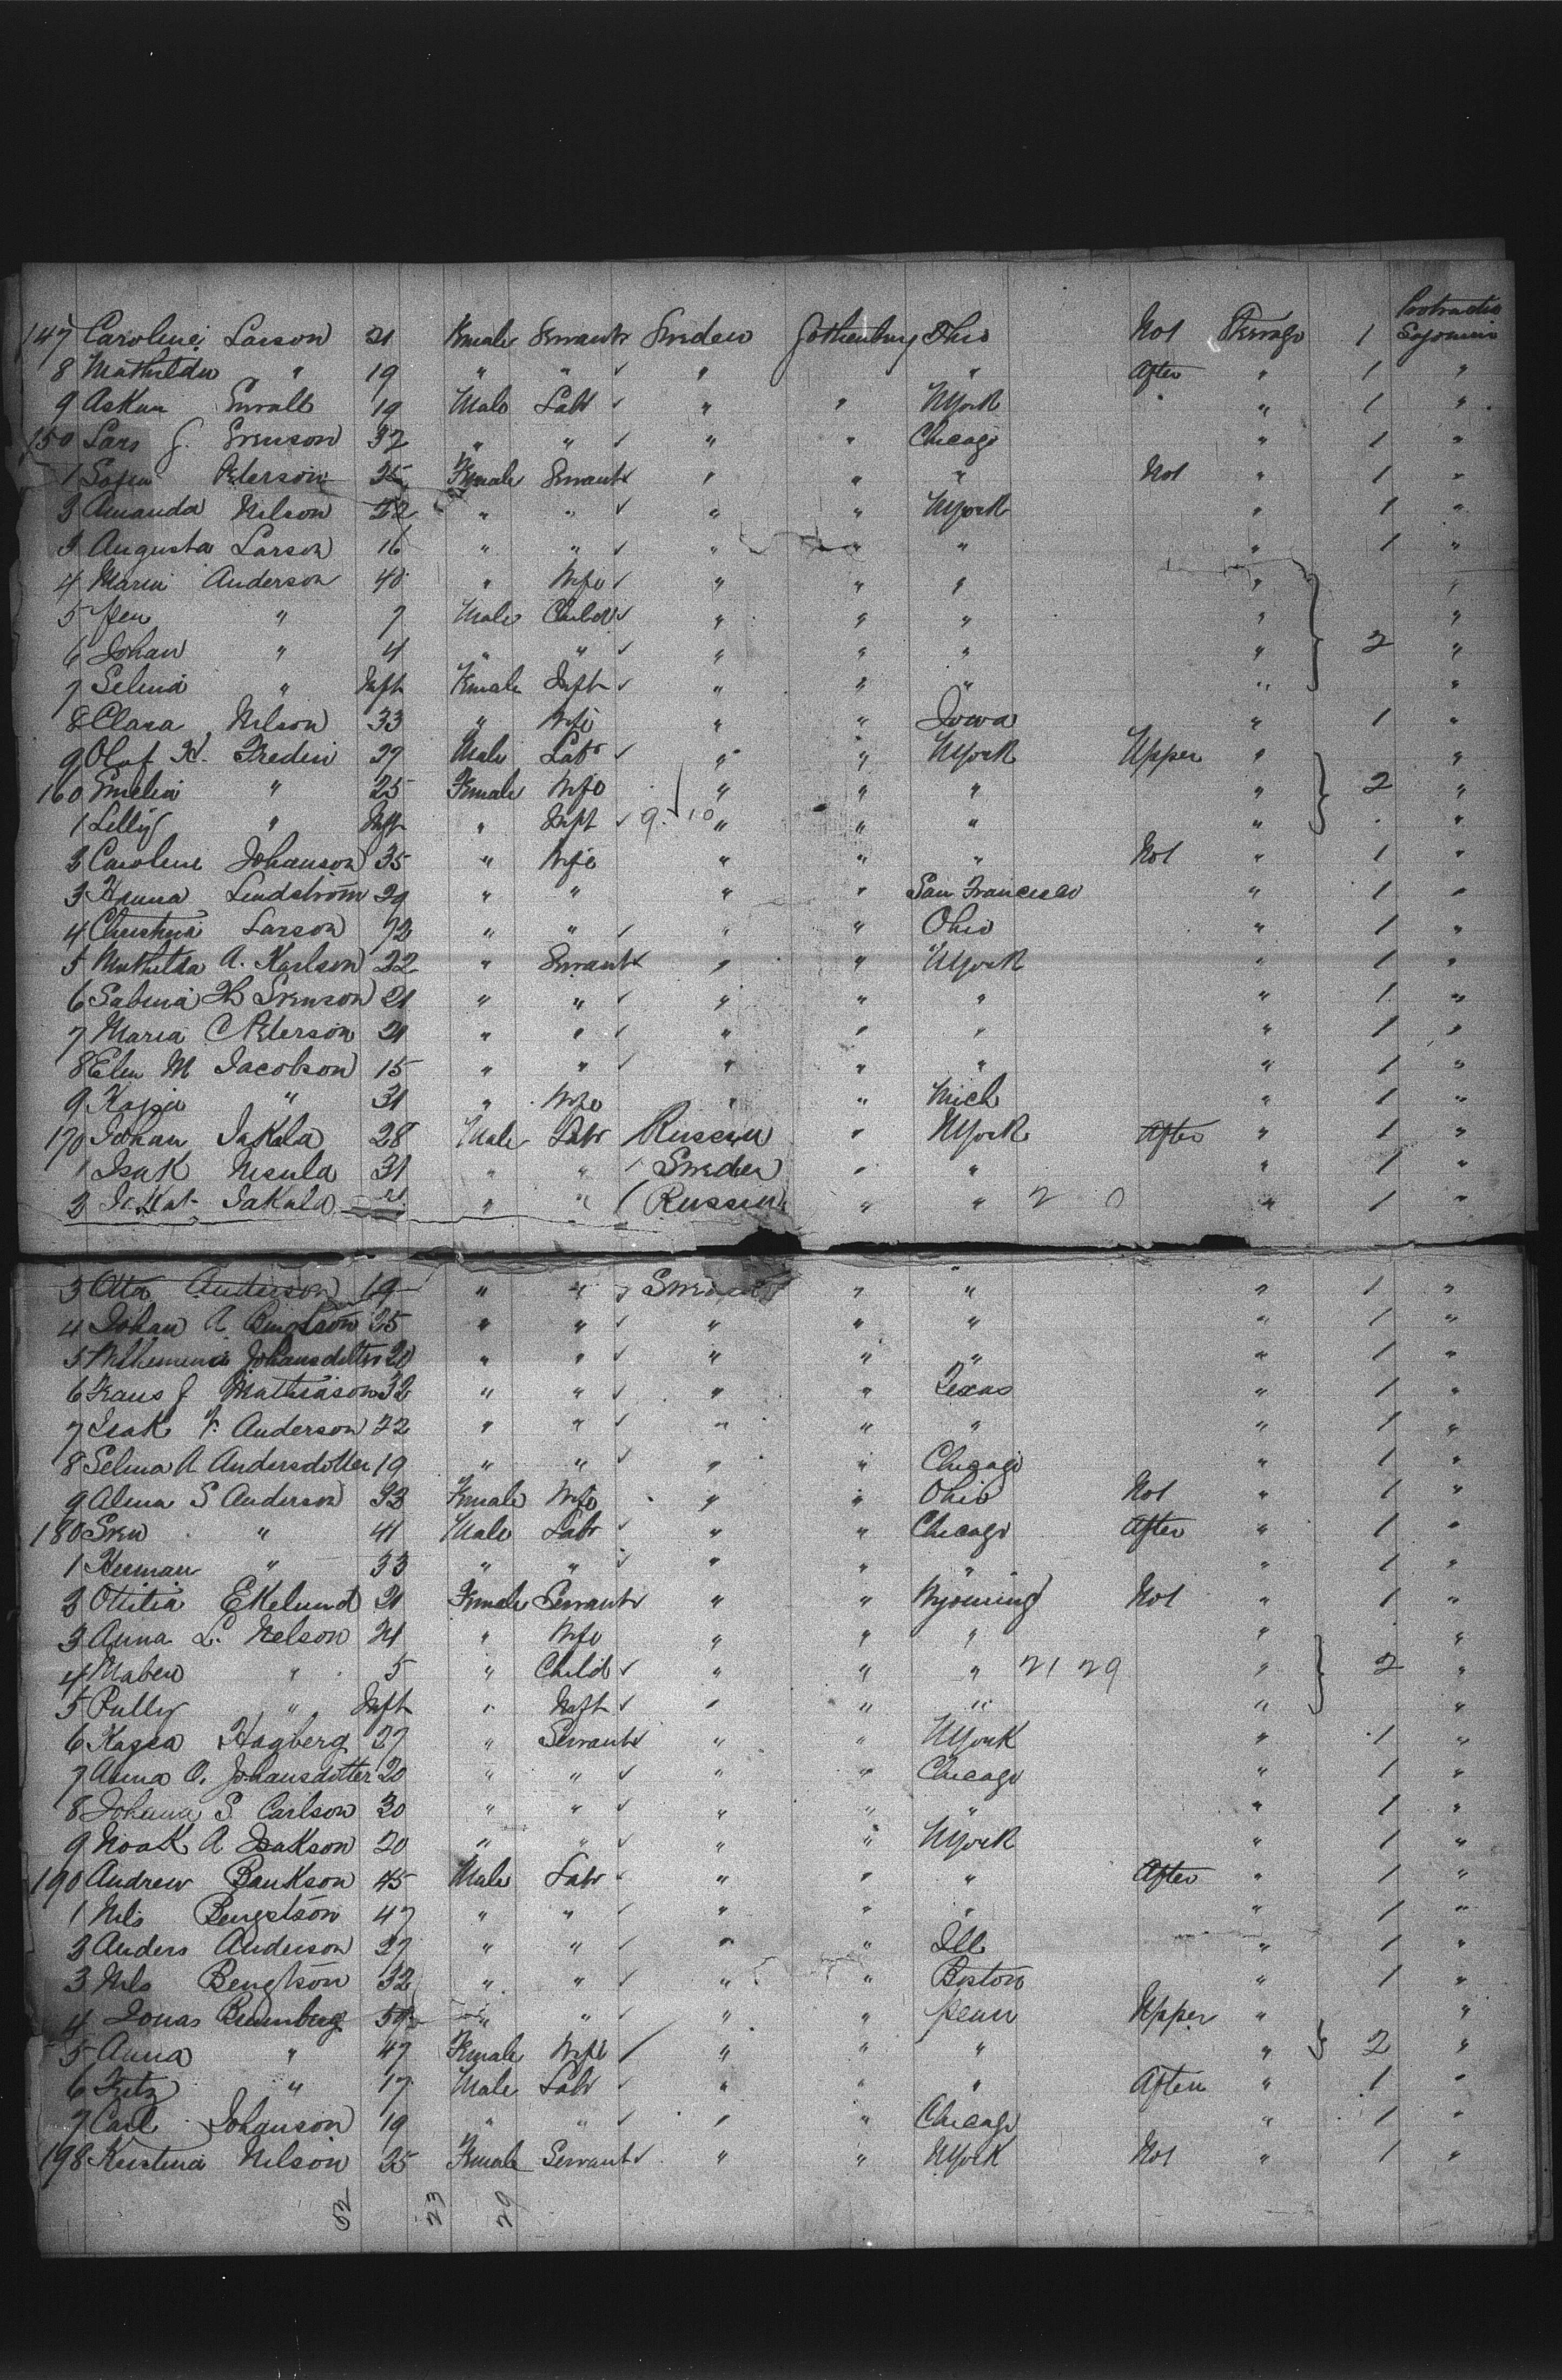 Protracted
147 Caroline Larson 21 Female Servant Sweden Gothenburg Ohio Not 1 Sojourn
8 Mathilda " 19 " " ✓ " " After " 1 "
9 Askar 19 Male Labr ✓ " " NYork " " 1 "
150 Lars J. Svenson 37 " " ✓ " " Chicago " 1 "
1 Sofia Peterson 25 Female Servant ✓ " " " Not " 1 "
3 Amanda Nilson 22 " " ✓ " " NYork " 1 "
3 Augusta Larson 16 " " ✓ " " " " 1 "
4 Maria Anderson 40 " Wife ✓ " " " " "
5 " 7 Male Child ✓ " " " " "
6 Johan " 4 " " ✓ " " " " 2 "
7 Selma " Inft Female Inft ✓ " " " " "
8 Clara Nilson 33 " Wife " " Iowa " 1 "
9 Olof Fredin 27 Male Labr ✓ " " NYork Upper " "
160 Emelia " 25 Female Wife " " " " 2 "
1 Lilly " Inft " Inft ✓ 9 10 " " " " "
2 Caroline Johanson 35 " Wife " " " Not " 1 "
3 Hanna Lindstrom 29 " " " " San Francisco " 1 "
4 Christina Larson 72 " " ✓ " " Ohio " 1 "
5 Mathilda A. Karlson 22 " Servant ✓ " " NYork " 1 "
6 Sabina Svenson 21 " " ✓ " " " " 1 "
7 Maria C Peterson 21 " " ✓ " " " " 1 "
8 Elin M Jacobson 15 " " ✓ " " " " 1 "
9 Kajsa " 31 " Wife " " Mich " 1 "
170 Johan Jakala 28 Male Labr Russia " NYork After " 1 "
1 Isak Nisula 31 " " / Sweden " " " 1 "
2 Jakala 21 " " / Russia " " 2 0 " 1 "
3 Otto Anderson 19 " " Sweden " " " 1 "
4 Johan A Bengtson 25 " " ✓ " " " " 1 "
5 Johansdotter 20 " " ✓ " " " " 1 "
6 Frans J Mathiason 32 " " ✓ " " Texas " 1 "
7 Isak Anderson 22 " " ✓ " " " " 1 "
8 Selma A Andersdotter 19 " " ✓ " " Chicago " 1 "
9 Alma S Anderson 33 Female Wife " " Ohio Not " 1 "
180 Sven " 41 Male Labr ✓ " " Chicago After " 1 "
1 Herman " 33 " " ✓ " " " " 1 "
2 Ottilia Ekelund 21 Female Servant ✓ " " Wyoming Not " 1 "
3 Anna L. Nelson 24 " Wife " " " " "
4 " 5 " Child ✓ " " " 21 29 " 2 "
5 " Inft " Inft ✓ " " " " "
6 Kajsa Hagberg 27 " Servant ✓ " " NYork " 1 "
7 Anna O. Johansdotter 20 " " ✓ " " Chicago " 1 "
8 Johanna S. Carlson 30 " " ✓ " " " " 1 "
9 Noak A Isakson 20 " " ✓ " " NYork " 1 "
190 Andrew Bankson 45 Male Labr ✓ " " " After " 1 "
1 Nils Bengtson 47 " " ✓ " " " " 1 "
2 Anders Anderson 27 " " ✓ " " Ill " 1 "
3 Nils Bengtson 32 " " ✓ " " Boston " 1 "
4 Jonas " " ✓ " " Penn Upper " "
5 Anna " 47 Female Wife ✓ " " " " 2 "
6 Fritz " 17 Male Labr ✓ " " " After " 1 "
7 Carl Johanson 19 " " ✓ " " Chicago " 1 "
198 Kristina Nilson 25 Female Servant ✓ " " NYork Not " 1 "
52 23 29